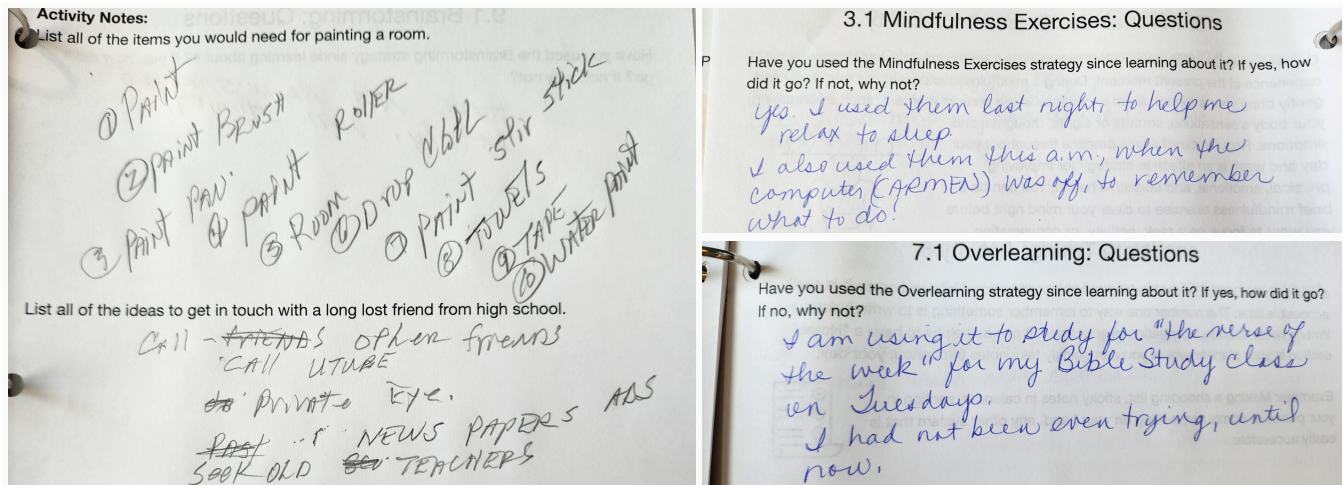 Activity Notes:
List all of the items you would need for painting a room.
① PAINT
② PAINT BRUSH
③ PAINT PAN
④ PAINT ROllER
⑤ ROOM
⑥ DROP Cloth
⑦ PAINT Stir Stick
⑧ TOWElS
⑨ TAPE
⑩ WATER PAINT
List all of the ideas to get in touch with a long lost friend from high school.
CAll - friends other friends
CAll UTUBE
Private Eye.
Past NEWS PAPERS ADS
SEEK OLD TEACHERS
3.1 Mindfulness Exercises: Questions
P
Have you used the Mindfulness Exercises strategy since learning about it? If yes, how
did it go? If not, why not?
yes. I used them last night, to help me
relax to sleep.
I also used them this a.m., when the
computer (CARMEN) was off, to remember
what to do!
7.1 Overlearning: Questions
Have you used the Overlearning strategy since learning about it? If yes, how did it go?
If no, why not?
I am using it to study for "the verse of
the week" for my Bible Study class
on Tuesdays.
I had not been even trying, until
now.